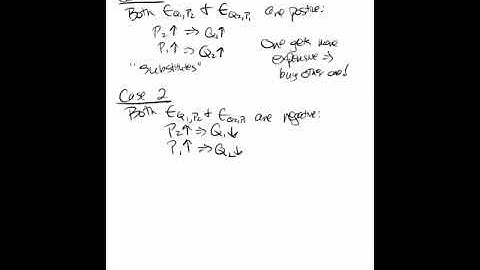 Both ϵQ₁,P₂ & ϵQ₂,P₁ are postive:
P₂↑ ⇒ Q₁↑
P₁↑ ⇒ Q₂↑
"substitutes"
One gets more
expensive ⇒
buy other one!
Case 2
Both ϵQ₁,P₂ & ϵQ₂,P₁ are negative:
P₂↑ ⇒ Q₁↓
P₁↑ ⇒ Q₂↓